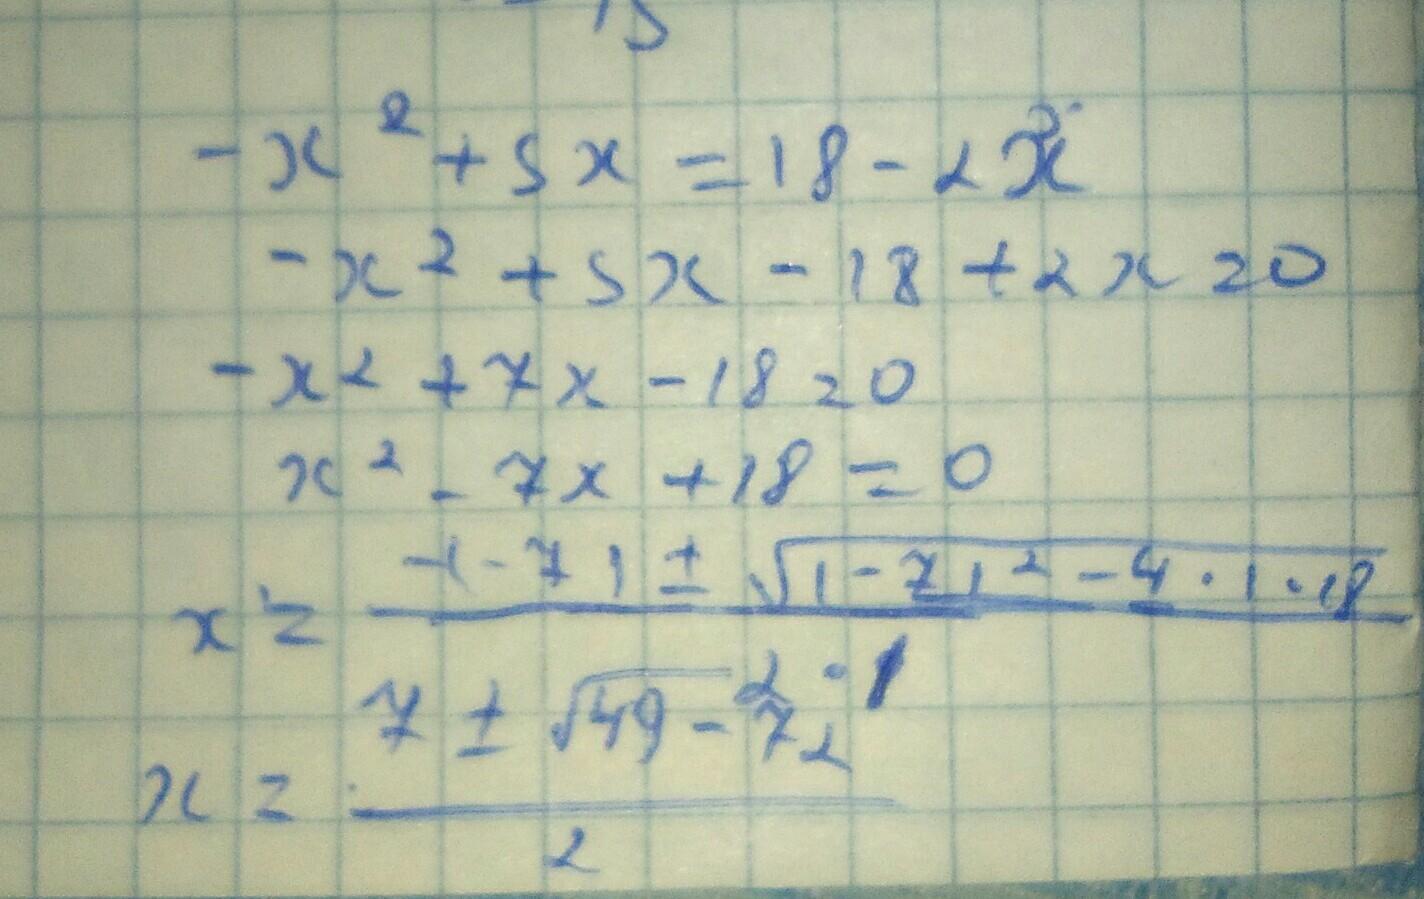 15
-x² + 5x = 18 - 2x
-x² + 5x - 18 + 2x = 0
-x² + 7x - 18 = 0
x² - 7x + 18 = 0
x = (-(-7) ± √((-7)² - 4 · 1 · 18)) / (2 · 1)
x = (7 ± √(49 - 72)) / 2